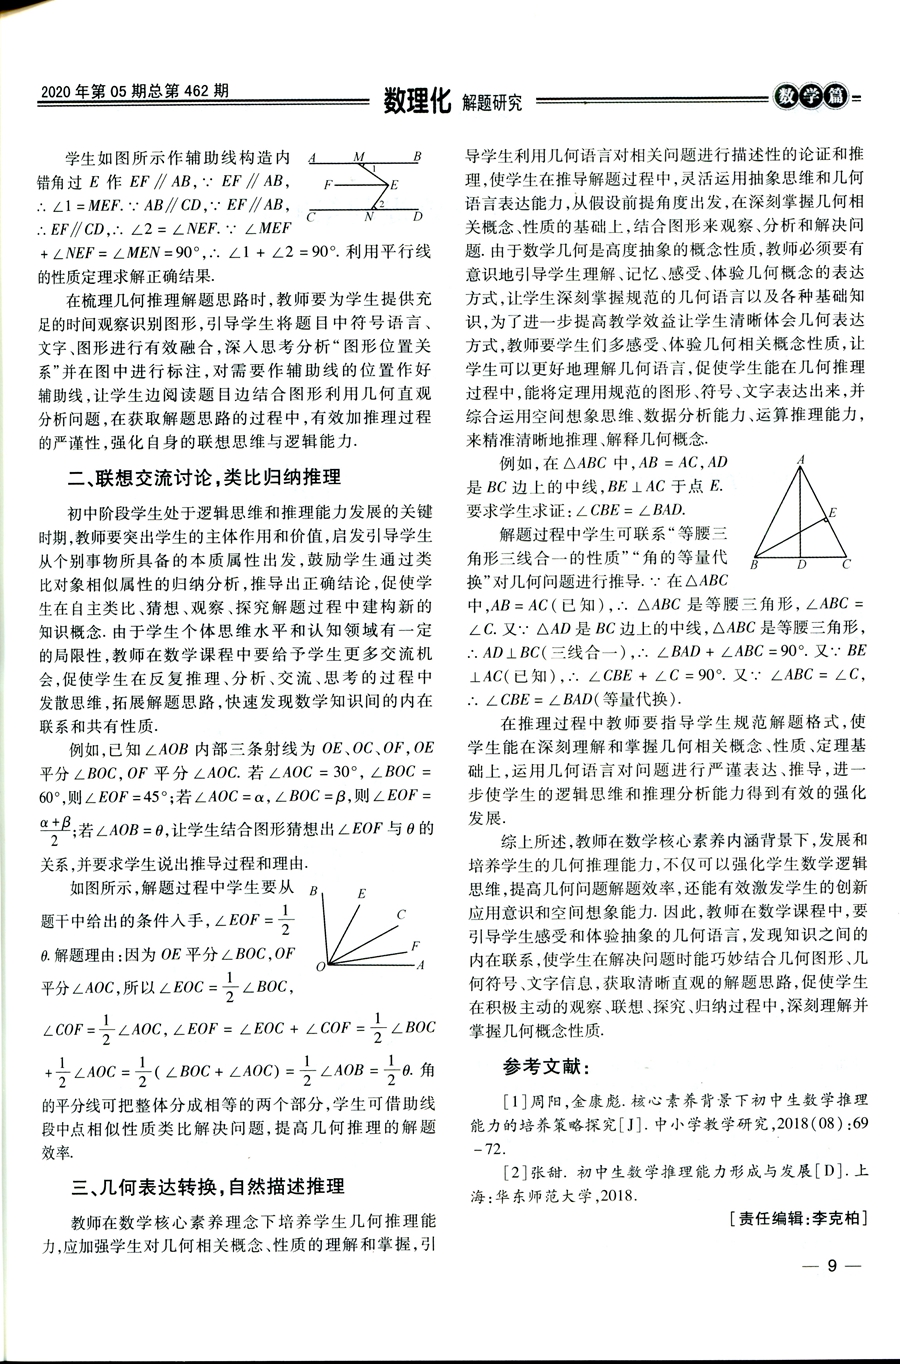 2020 年第 05 期总第 462 期
数理化 解题研究
数学篇
学生如图所示作辅助线构造内
错角过 E 作 EF∥AB,∵ EF∥AB,
∴ ∠1 = MEF. ∵ AB∥CD,∵ EF∥AB,
∴ EF∥CD,∴ ∠2 = ∠NEF. ∵ ∠MEF
+ ∠NEF = ∠MEN = 90°,∴ ∠1 + ∠2 = 90°. 利用平行线
的性质定理求解正确结果.
A M B
1
F E
2
C N D
在梳理几何推理解题思路时,教师要为学生提供充
足的时间观察识别图形,引导学生将题目中符号语言、
文字、图形进行有效融合,深入思考分析“图形位置关
系”并在图中进行标注,对需要作辅助线的位置作好
辅助线,让学生边阅读题目边结合图形利用几何直观
分析问题,在获取解题思路的过程中,有效加推理过程
的严谨性,强化自身的联想思维与逻辑能力.
二、联想交流讨论,类比归纳推理
初中阶段学生处于逻辑思维和推理能力发展的关键
时期,教师要突出学生的主体作用和价值,启发引导学生
从个别事物所具备的本质属性出发,鼓励学生通过类
比对象相似属性的归纳分析,推导出正确结论,促使学
生在自主类比、猜想、观察、探究解题过程中建构新的
知识概念. 由于学生个体思维水平和认知领域有一定
的局限性,教师在数学课程中要给予学生更多交流机
会,促使学生在反复推理、分析、交流、思考的过程中
发散思维,拓展解题思路,快速发现数学知识间的内在
联系和共有性质.
例如,已知∠AOB 内部三条射线为 OE、OC、OF,OE
平分∠BOC,OF 平分∠AOC. 若∠AOC = 30°,∠BOC =
60°,则∠EOF = 45°;若∠AOC = α,∠BOC = β,则∠EOF =
(α+β)/2;若∠AOB = θ,让学生结合图形猜想出∠EOF 与 θ 的
关系,并要求学生说出推导过程和理由.
如图所示,解题过程中学生要从
题干中给出的条件入手,∠EOF = 1/2
θ. 解题理由:因为 OE 平分∠BOC,OF
平分∠AOC,所以∠EOC = 1/2∠BOC,
B E
C
F
O A
∠COF = 1/2∠AOC,∠EOF = ∠EOC + ∠COF = 1/2∠BOC
+ 1/2∠AOC = 1/2(∠BOC + ∠AOC) = 1/2∠AOB = 1/2θ. 角
的平分线可把整体分成相等的两个部分,学生可借助线
段中点相似性质类比解决问题,提高几何推理的解题
效率.
三、几何表达转换,自然描述推理
教师在数学核心素养理念下培养学生几何推理能
力,应加强学生对几何相关概念、性质的理解和掌握,引
导学生利用几何语言对相关问题进行描述性的论证和推
理,使学生在推导解题过程中,灵活运用抽象思维和几何
语言表达能力,从假设前提角度出发,在深刻掌握几何相
关概念、性质的基础上,结合图形来观察、分析和解决问
题. 由于数学几何是高度抽象的概念性质,教师必须要有
意识地引导学生理解、记忆、感受、体验几何概念的表达
方式,让学生深刻掌握规范的几何语言以及各种基础知
识,为了进一步提高教学效益让学生清晰体会几何表达
方式,教师要学生们多感受、体验几何相关概念性质,让
学生可以更好地理解几何语言,促使学生能在几何推理
过程中,能将定理用规范的图形、符号、文字表达出来,并
综合运用空间想象思维、数据分析能力、运算推理能力,
来精准清晰地推理、解释几何概念.
例如,在△ABC 中,AB = AC,AD
是 BC 边上的中线,BE⊥AC 于点 E.
要求学生求证:∠CBE = ∠BAD.
解题过程中学生可联系“等腰三
角形三线合一的性质”“角的等量代
换”对几何问题进行推导. ∵ 在△ABC
A
E
B D C
中,AB = AC(已知),∴ △ABC 是等腰三角形,∠ABC =
∠C. 又∵ △AD 是 BC 边上的中线,△ABC 是等腰三角形,
∴ AD⊥BC(三线合一),∴ ∠BAD + ∠ABC = 90°. 又∵ BE
⊥AC(已知),∴ ∠CBE + ∠C = 90°. 又∵ ∠ABC = ∠C,
∴ ∠CBE = ∠BAD(等量代换).
在推理过程中教师要指导学生规范解题格式,使
学生能在深刻理解和掌握几何相关概念、性质、定理基
础上,运用几何语言对问题进行严谨表达、推导,进一
步使学生的逻辑思维和推理分析能力得到有效的强化
发展.
综上所述,教师在数学核心素养内涵背景下,发展和
培养学生的几何推理能力,不仅可以强化学生数学逻辑
思维,提高几何问题解题效率,还能有效激发学生的创新
应用意识和空间想象能力. 因此,教师在数学课程中,要
引导学生感受和体验抽象的几何语言,发现知识之间的
内在联系,使学生在解决问题时能巧妙结合几何图形、几
何符号、文字信息,获取清晰直观的解题思路,促使学生
在积极主动的观察、联想、探究、归纳过程中,深刻理解并
掌握几何概念性质.
参考文献:
[1]周阳,金康彪. 核心素养背景下初中生数学推理
能力的培养策略探究[J]. 中小学教学研究,2018(08):69
-72.
[2]张甜. 初中生数学推理能力形成与发展[D]. 上
海:华东师范大学,2018.
[责任编辑:李克柏]
— 9 —